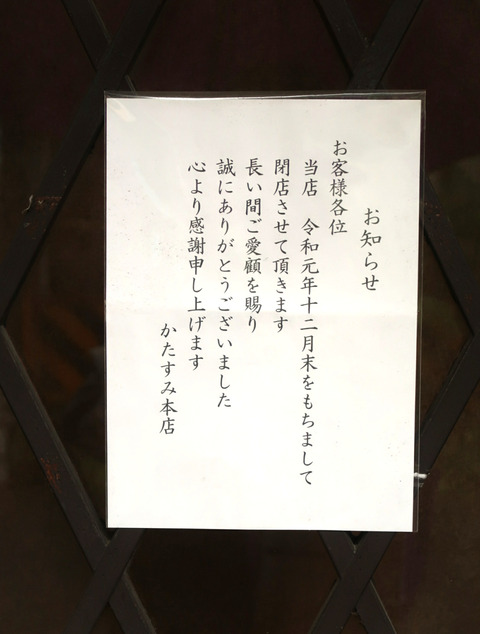 お知らせ
お客様各位
当店　令和元年十二月末をもちまして
閉店させて頂きます
長い間ご愛顧を賜り
誠にありがとうございました
心より感謝申し上げます
かたすみ本店